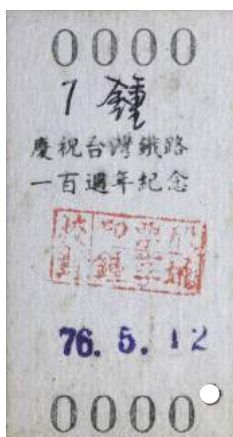 0000
1 鍾
慶祝台灣鐵路
一百週年紀念
76. 5. 12
0000